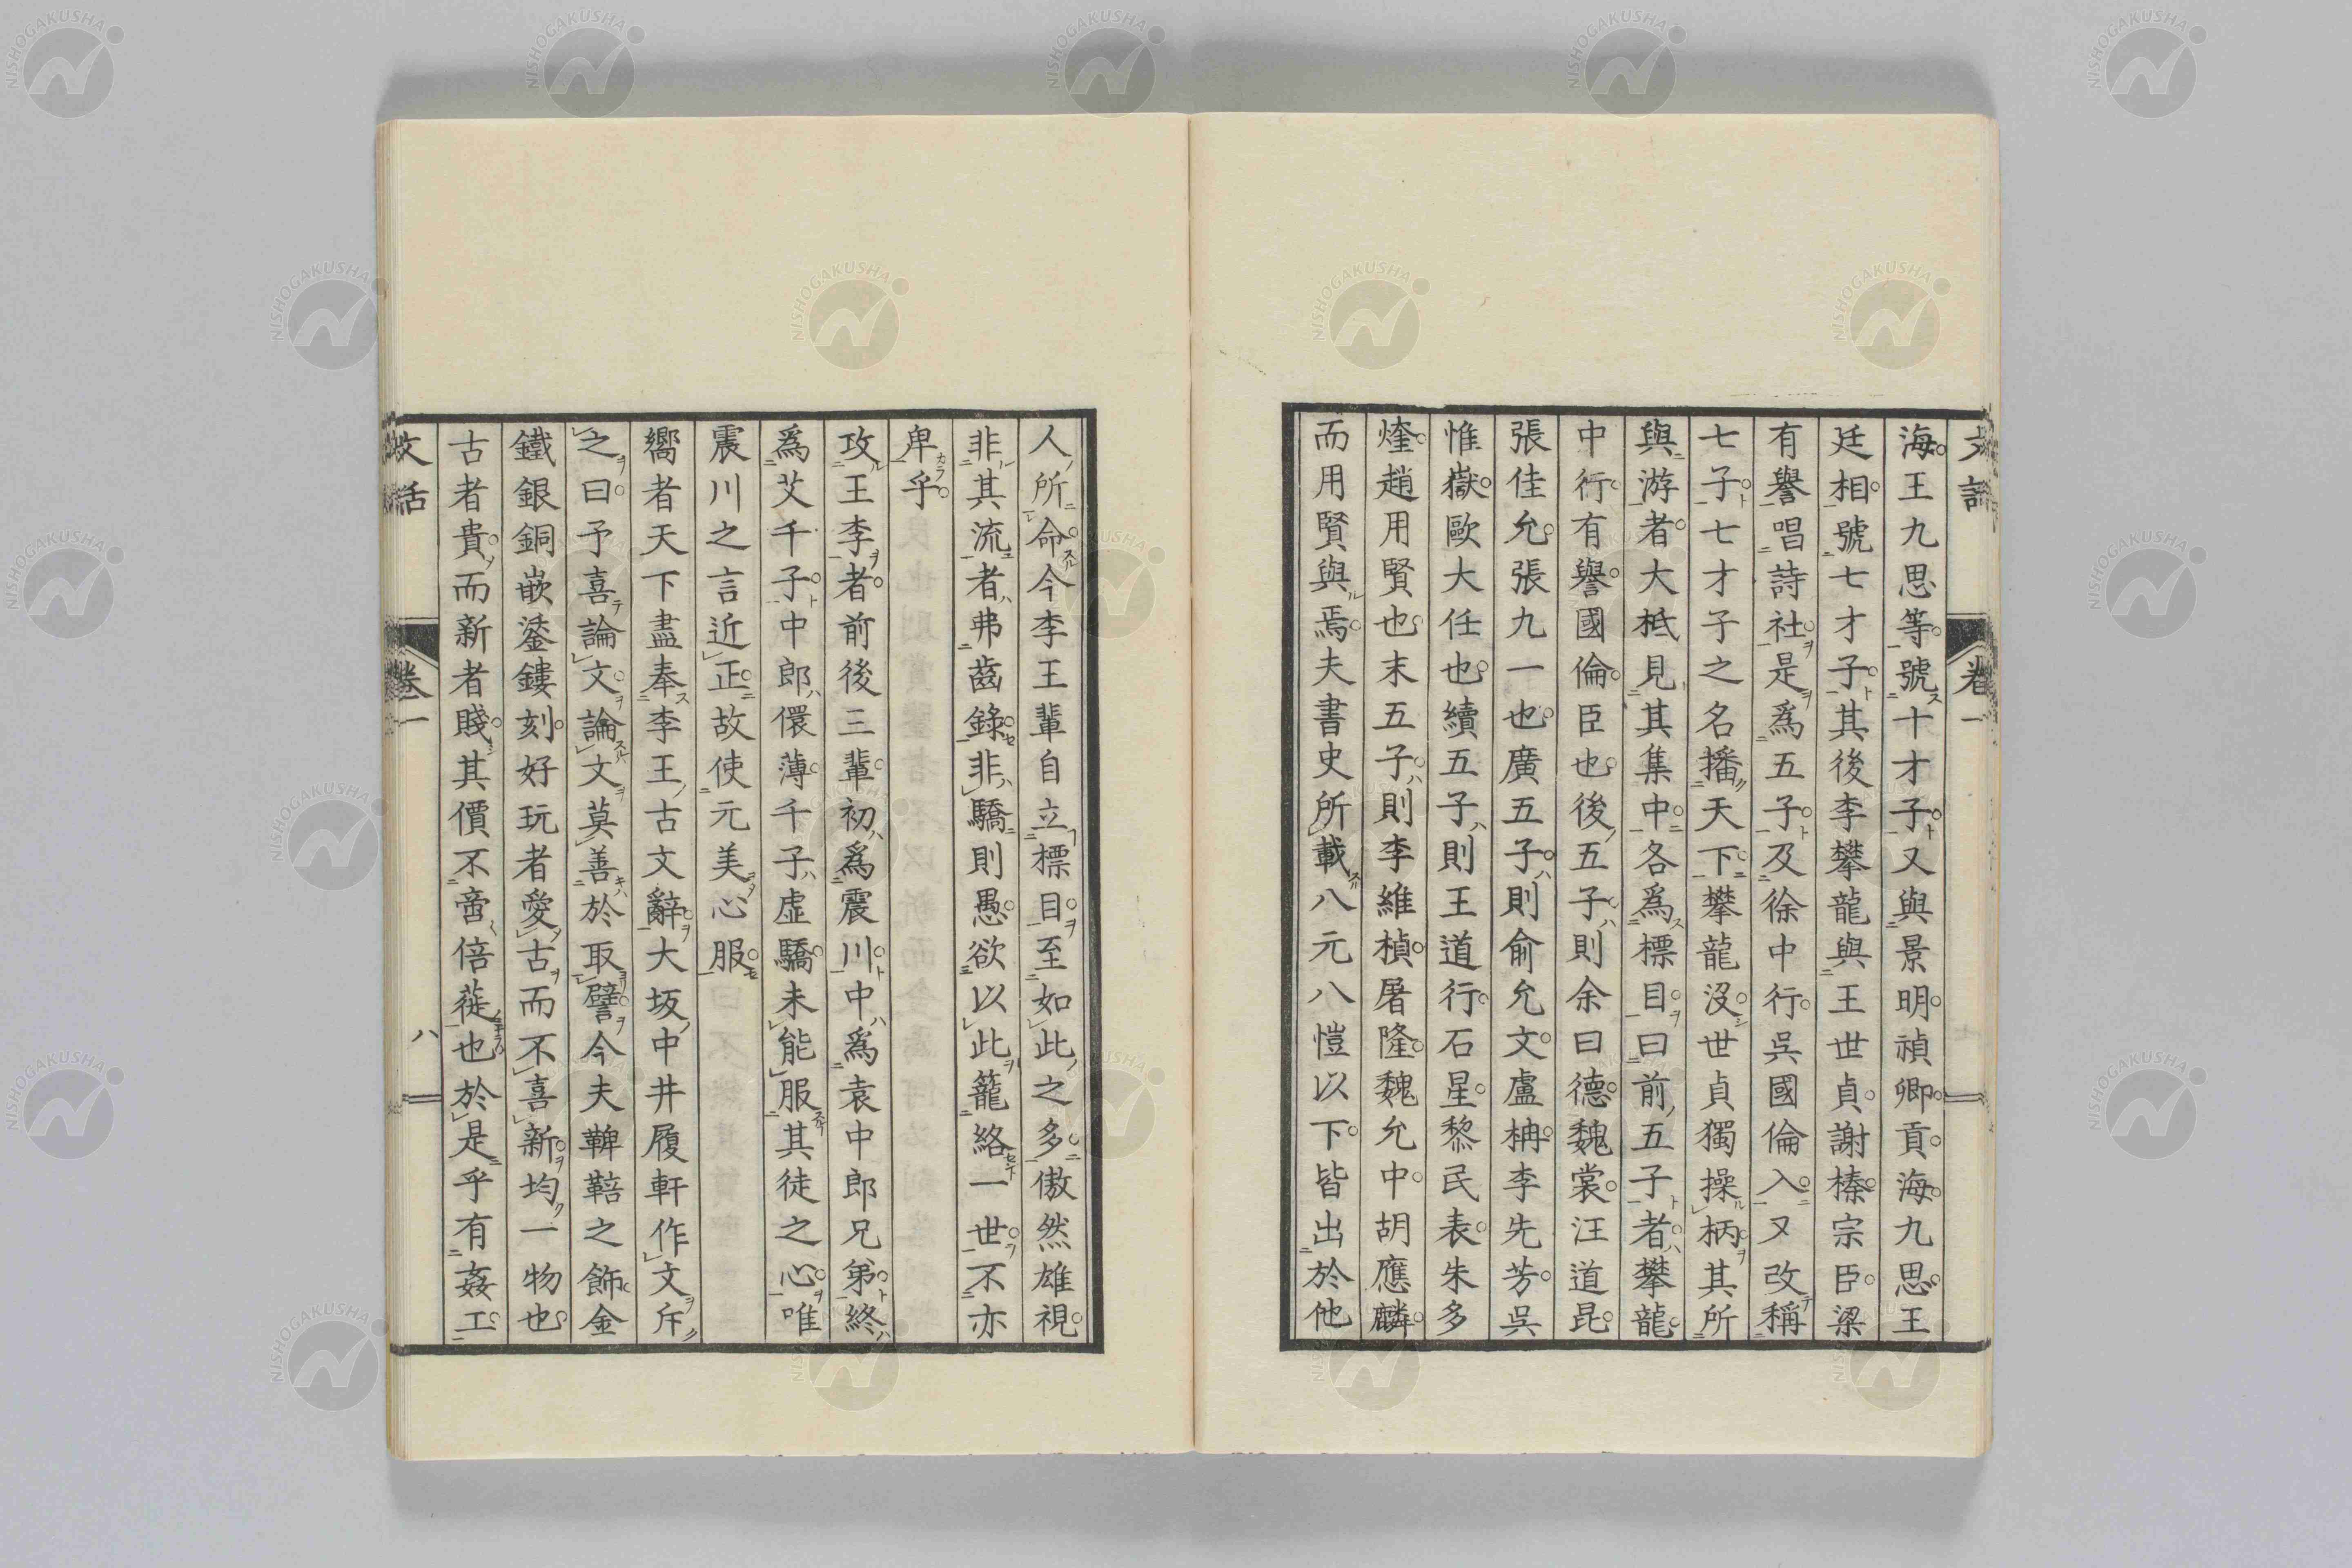 文話
卷一
海王九思等號十才子又與景明禎卿貢海九思王
廷相號七才子其後李攀龍與王世貞謝榛宗臣梁
有譽唱詩社是爲五子及徐中行吳國倫入又改稱
七子七才子之名播天下攀龍沒世貞獨操柄其所
與游者大抵見其集中各爲標目曰前五子者攀龍
中行有譽國倫臣也後五子則余曰德魏裳汪道昆
張佳允張九一也廣五子則俞允文盧柟李先芳吳
惟嶽歐大任也續五子則王道行石星黎民表朱多
煃趙用賢也末五子則李維楨屠隆魏允中胡應麟
而用賢與焉夫書史所載八元八愷以下皆出於他
人所命今李王輩自立標目至如此之多傲然雄視
非其流者弗齒錄非驕則愚欲以此籠絡一世不亦
卑乎
攻王李者前後三輩初爲震川中爲袁中郎兄弟終
爲艾千子中郎儇薄千子虛驕未能服其徒之心唯
震川之言近正故使元美心服
嚮者天下盡奉李王古文辭大坂中井履軒作文斥
之曰予喜論文論文莫善於取譬今夫鞞鞛之飾金
鐵銀銅嵌鋈鏤刻好玩者愛古而不喜新均一物也
古者貴而新者賤其價不啻倍蓰也於是乎有姦工
文話
卷一
八
NISHOGAKUSHA